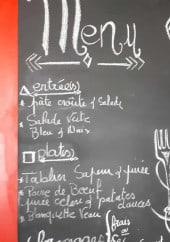 Menu
entrées
* Pâte croûte & Salade
* Salade Verte
Bleu & Noix
Plats
Sapeur & purée
* Poire de Boeuf
purée céleri & patates douces
* Blanquette Veau
frais